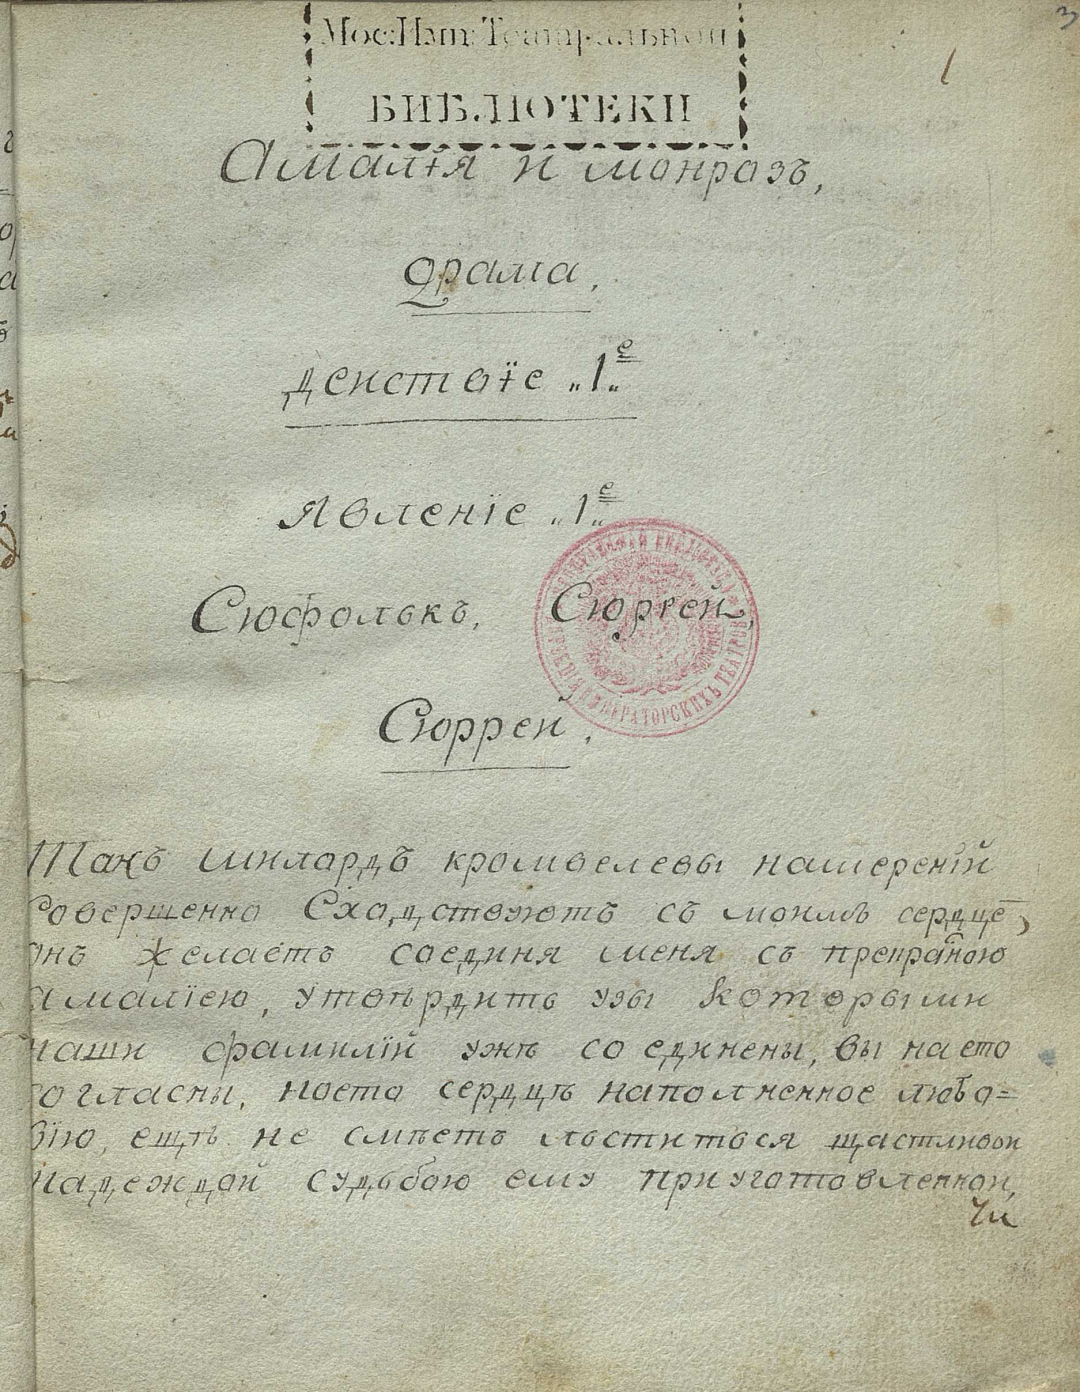 3
Мос: Имп: Театральной
1
БИБЛІОТЕКИ
Амалія и монразъ,
драма,
дейстьвіе „1е„
Явленіе „1е„
Сюфолькъ, Сюррей,
Сюррей,
Такъ милардъ кромвелевы намереній
совершенно Схадствуютъ съ моимъ сердце,
онъ желаетъ соединя меня съ прекрасною
амаліею, утвѣрдить узы которыми
наши фамилій ужѣ соединены, вы на ето
согласны, но ето сердцѣ наполненное любо=
вію, ещѣ не смѣетъ льститься щастливои
надеждой судьбою ему приуготовленной,